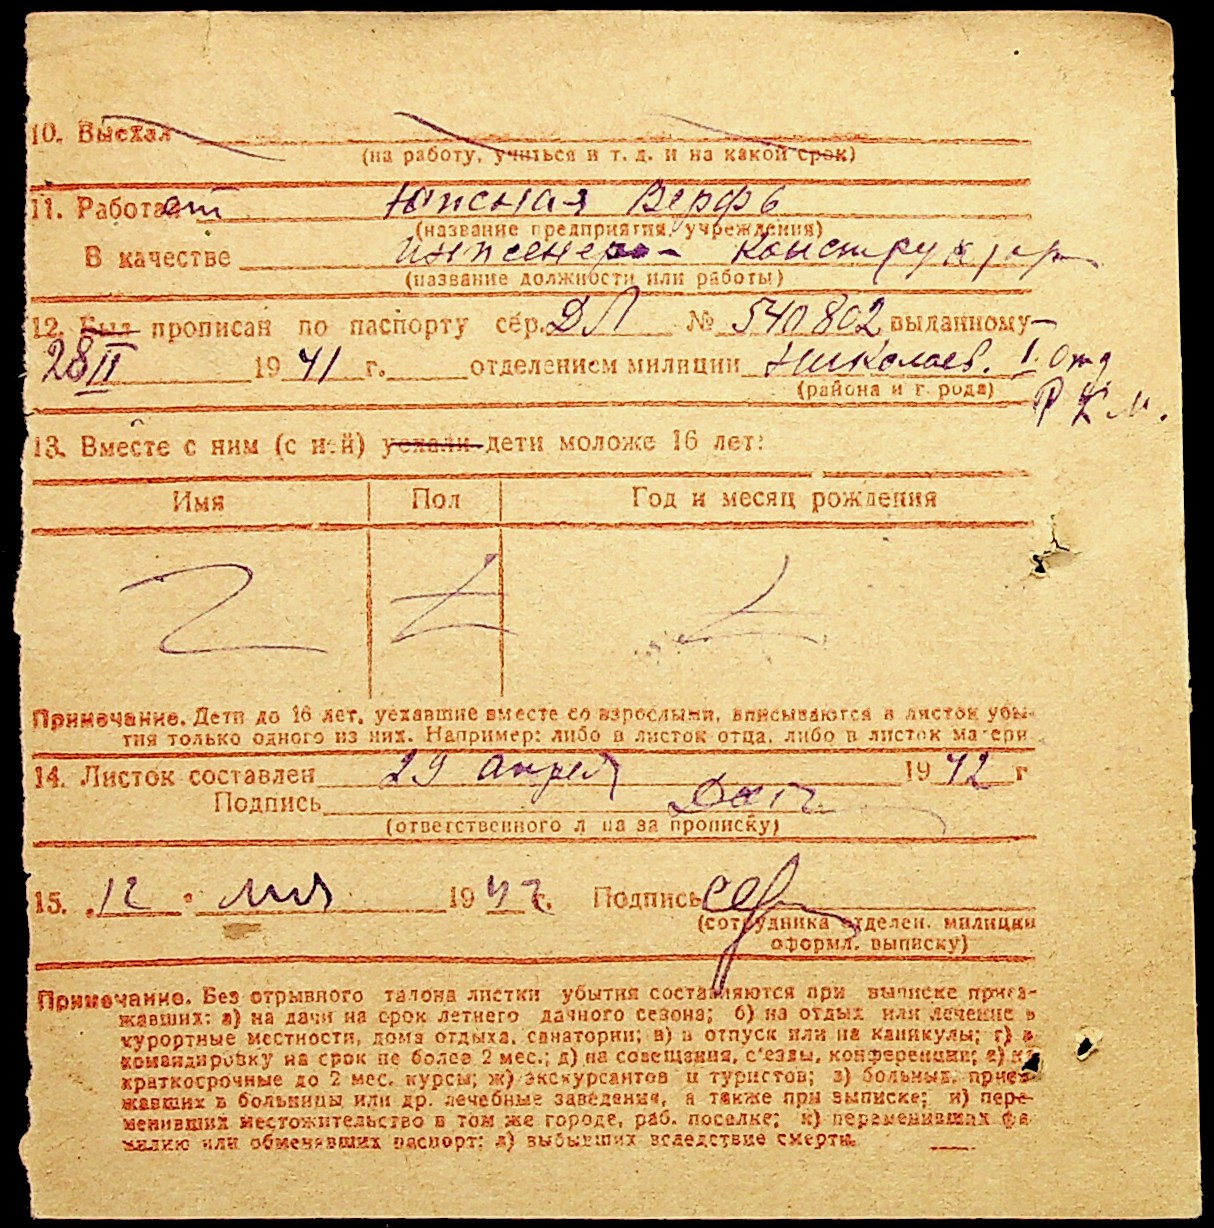 10. Выехал
(на работу, учиться и т. д. и на какой срок)
11. Работает Южная Верфь
(название предприятия, учреждения)
В качестве инженера-конструктор
(название должности или работы)
12. Был прописан по паспорту сер. ДЛ № 540802 выданному
28 II 1941 г. отделением милиции Николаев. I отд
(района и города) Р К М.
13. Вместе с ним (с ней) уехали дети моложе 16 лет:
Имя Пол Год и месяц рождения
Примечание. Дети до 16 лет, уехавшие вместе со взрослыми, вписываются в листок убы-
тия только одного из них. Например: либо в листок отца, либо в листок матери
14. Листок составлен 29 апреля 1942 г
Подпись
(ответственного лица за прописку)
15. 12 мая 1942 г. Подпись
(сотрудника отделен. милиции
оформл. выписку)
Примечание. Без отрывного талона листки убытия составляются при выписке приез-
жавших: а) на дачи на срок летнего дачного сезона; б) на отдых или лечение в
курортные местности, дома отдыха, санатории; в) в отпуск или на каникулы; г) в
командировку на срок не более 2 мес.; д) на совещания, с'езды, конференции; е) на
краткосрочные до 2 мес. курсы; ж) экскурсантов и туристов; з) больных, приез-
жавших в больницы или др. лечебные заведения, а также при выписке; и) пере-
менивших местожительство в том же городе, раб. поселке; к) переменивших фа-
милию или обменявших паспорт; л) выбывших вследствие смерти.